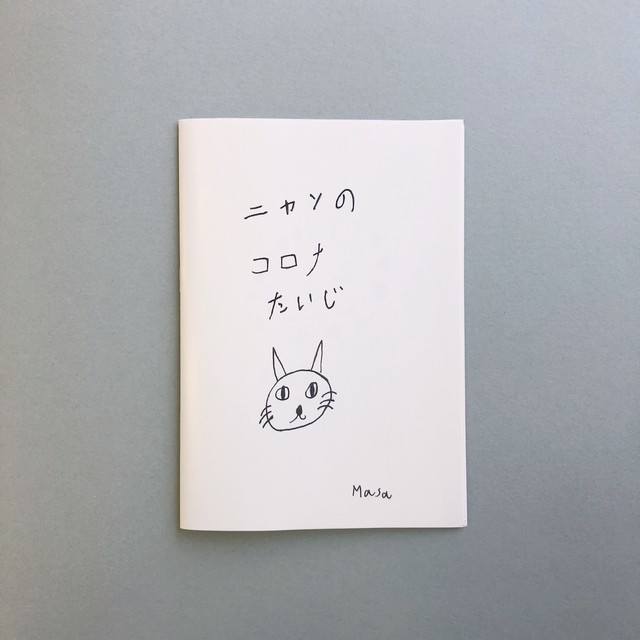 ニャンの
コロナ
たいじ
Masa